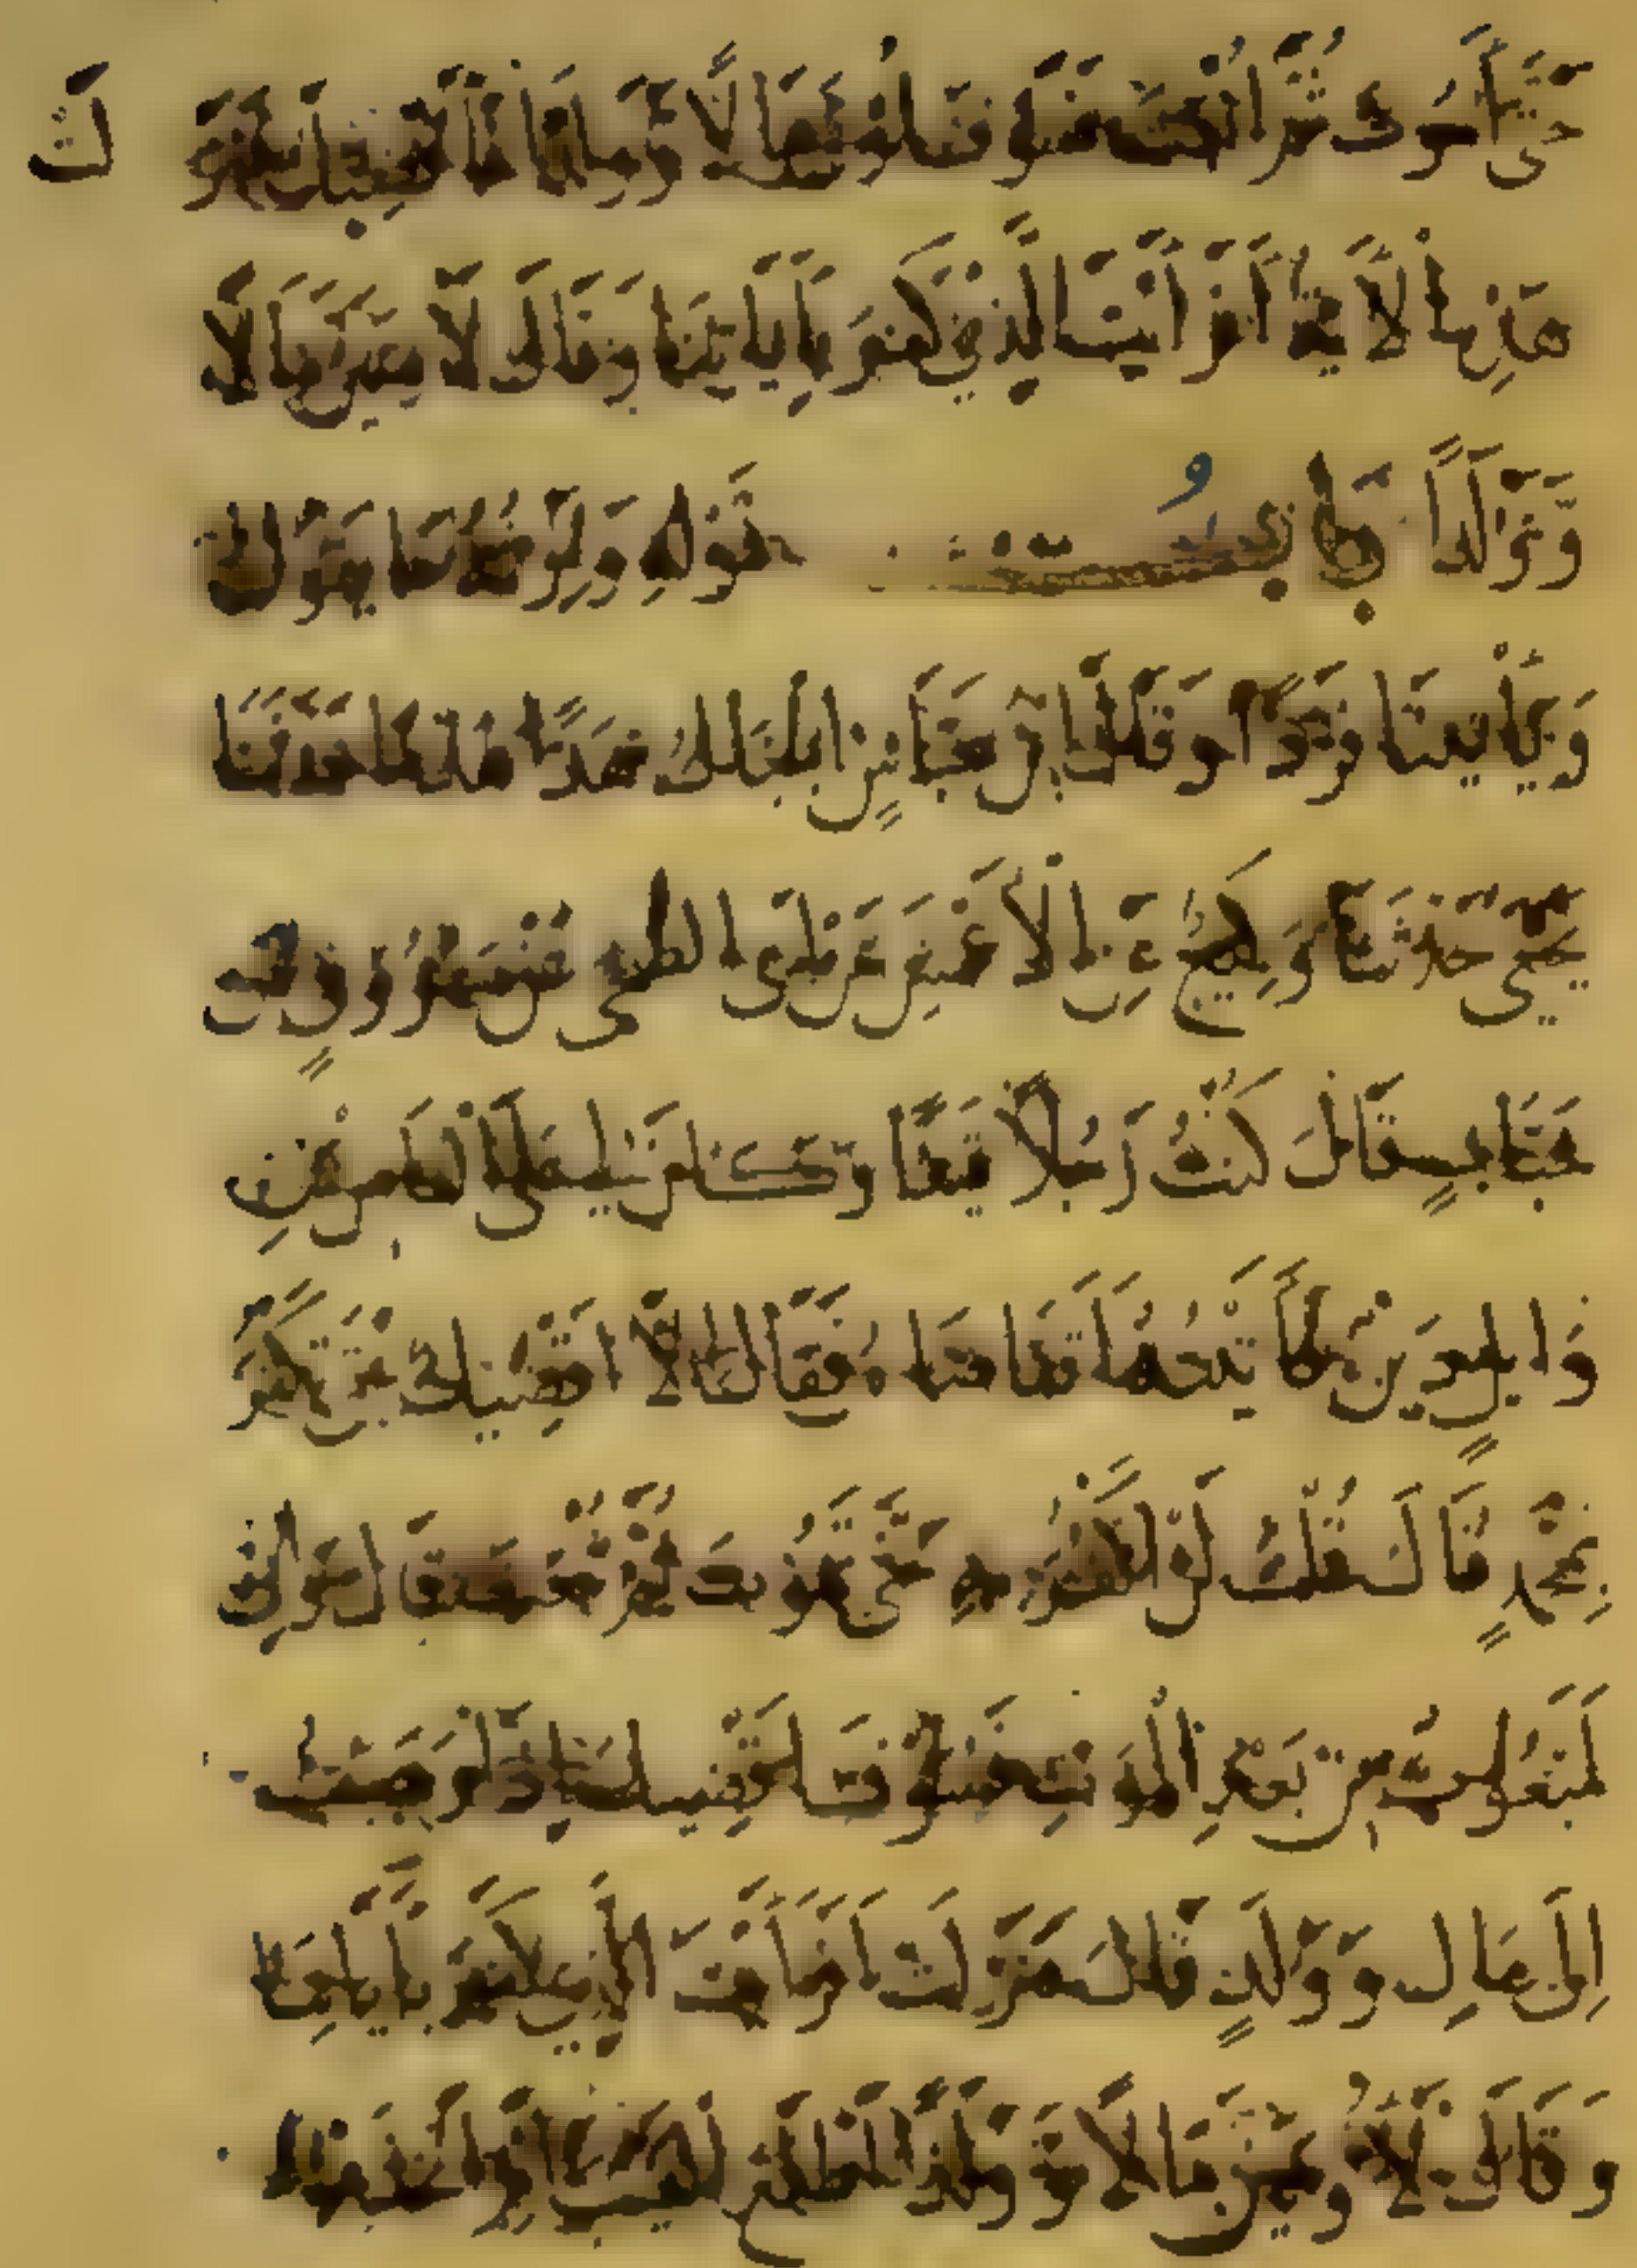 حَتَّى أَمُوتَ ثُمَّ أُبْعَثَ فَسَوْفَ أُوتَى مَالًا وَوَلَدًا فَأَقْضِيَكَ فَنَزَلَتْ
هَذِهِ الْآيَةُ أَفَرَأَيْتَ الَّذِي كَفَرَ بِآيَاتِنَا وَقَالَ لَأُوتَيَنَّ مَالًا
وَّوَلَدًا بَابُ قَوْلِهِ وَنَرِثُهُ مَا يَقُولُ
وَيَأْتِينَا فَرْدًا وَقَالَ ابْنُ عَبَّاسٍ الْجِبَالُ هَدًّا هَدْمًا حَدَّثَنَا
يَحْيَى حَدَّثَنَا وَكِيعٌ عَنِ الْأَعْمَشِ عَنْ أَبِي الضُّحَى عَنْ مَسْرُوقٍ عَنْ
خَبَّابٍ قَالَ كُنْتُ رَجُلًا قَيْنًا وَكَانَ لِي عَلَى الْعَاصِ بْنِ
وَائِلٍ دَيْنٌ فَأَتَيْتُهُ أَتَقَاضَاهُ فَقَالَ لِي لَا أَقْضِيكَ حَتَّى تَكْفُرَ
بِمُحَمَّدٍ قَالَ قُلْتُ لَنْ أَكْفُرَ بِهِ حَتَّى تَمُوتَ ثُمَّ تُبْعَثَ قَالَ وَإِنِّي
لَمَبْعُوثٌ مِنْ بَعْدِ الْمَوْتِ فَسَوْفَ أَقْضِيكَ إِذَا رَجَعْتُ
إِلَى مَالٍ وَوَلَدٍ قَالَ فَنَزَلَتْ أَفَرَأَيْتَ الَّذِي كَفَرَ بِآيَاتِنَا
وَقَالَ لَأُوتَيَنَّ مَالًا وَوَلَدًا أَطَّلَعَ الْغَيْبَ أَمِ اتَّخَذَ عِنْدَ